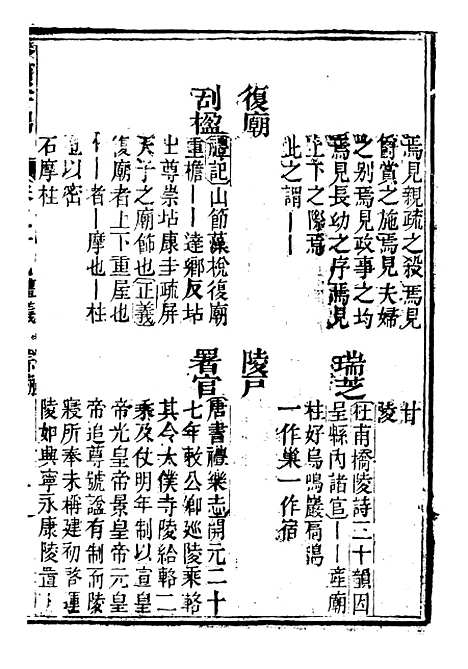 焉見親疏之殺焉見
爵賞之施焉見夫婦
之别焉見政事之均
焉見長幼之序焉見
上下之際焉
此之謂丨丨
復廟
刮楹
禮記山節藻梲復廟
重檐丨丨達鄉反坫
出尊崇坫康圭疏屏
天子之廟飾也正義
復廟者上下重屋也
丨丨者丨摩也丨柱
以密
石摩柱
甘
陵
瑞芝
杜甫橋陵詩三十韻因
呈縣内諸官丨丨産廟
柱好鳥鳴巖扃鴰
一作巢一作宿
陵戸
署官
唐書禮樂志開元二十
七年敕公卿巡陵乘輅
其令太僕寺陵給輅二
乘及仗明年制以宣皇
帝光皇帝景皇帝元皇
帝追尊號諡有制而陵
寢所奉未稱建初啓運
陵如興寧永康陵置丨
禮義 宗廟